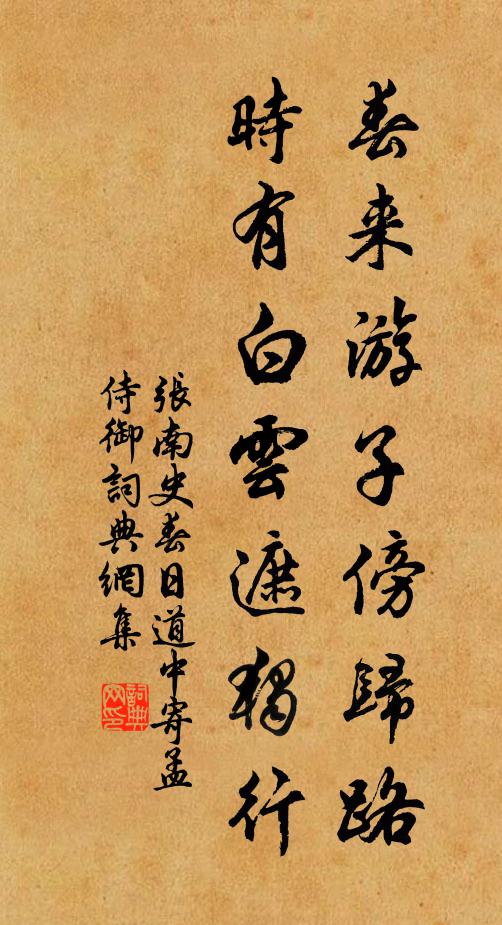 春来游子傍歸路
時有白雲遮獨行
張南史春日道中寄孟
侍御詞典網集
詞典网印